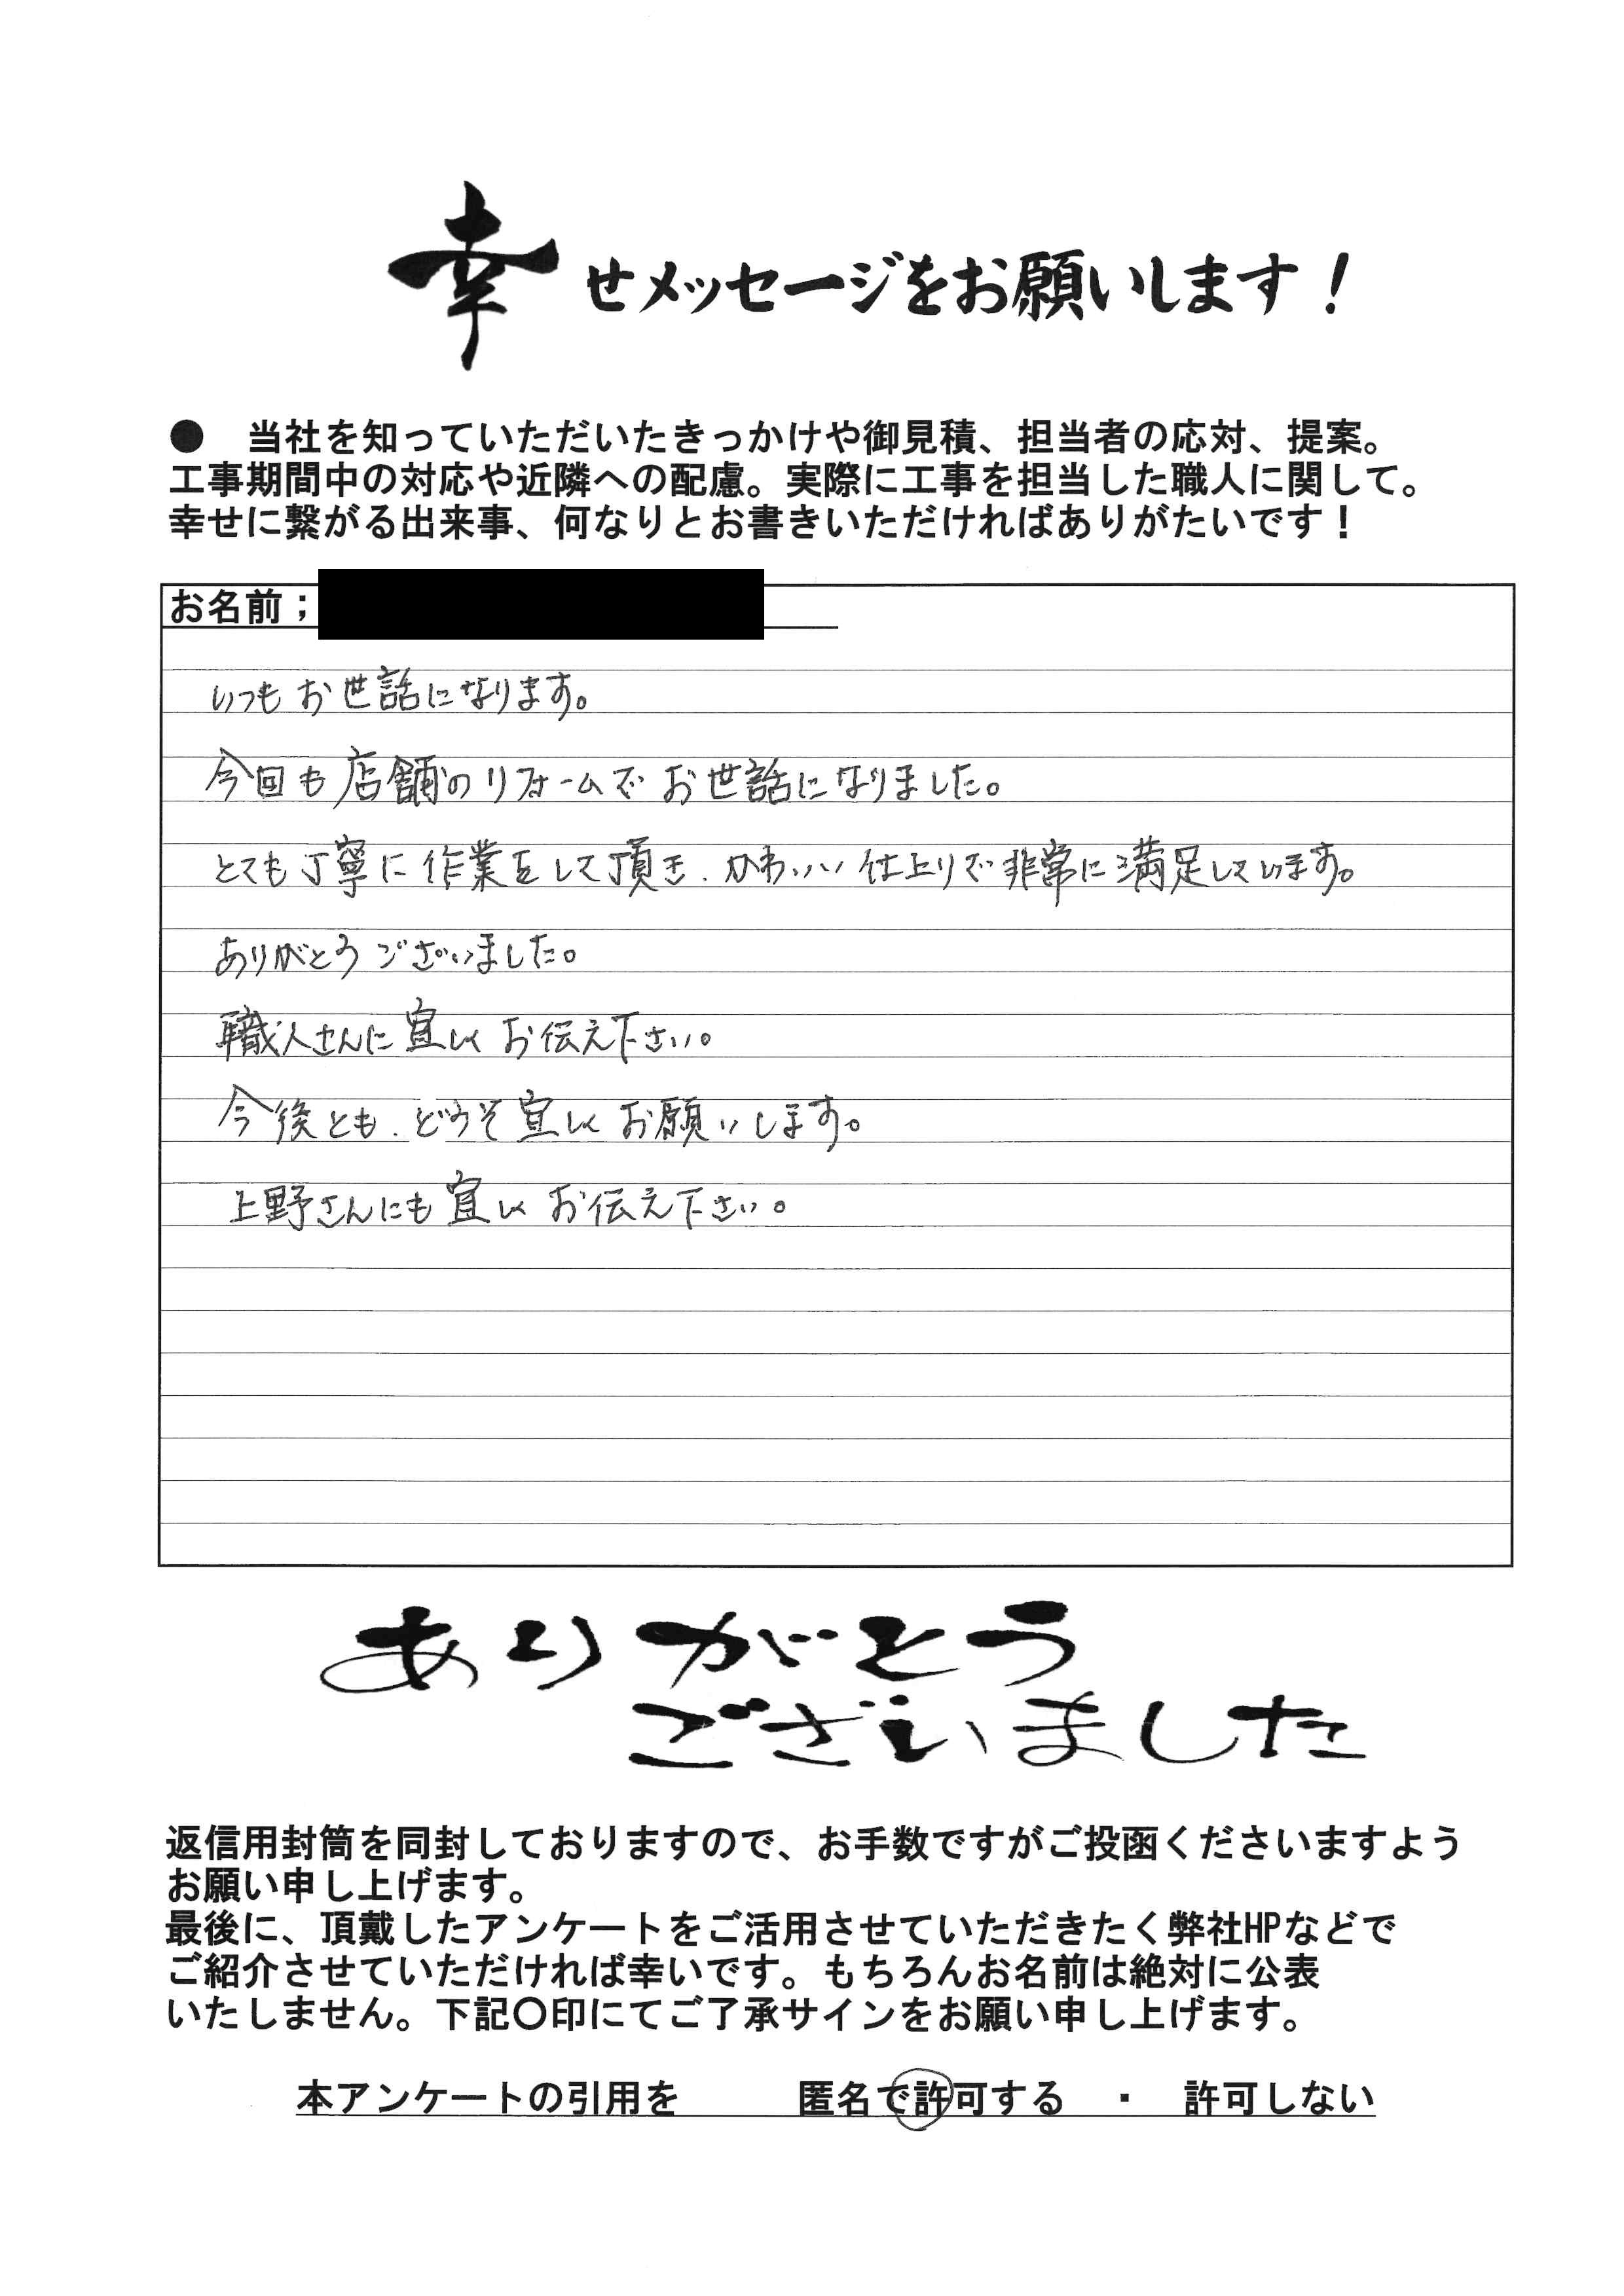 幸せメッセージをお願いします！
●　当社を知っていただいたきっかけや御見積、担当者の応対、提案。
工事期間中の対応や近隣への配慮。実際に工事を担当した職人に関して。
幸せに繋がる出来事、何なりとお書きいただければありがたいです！
お名前；
いつもお世話になります。
今回も店舗のリフォームでお世話になりました。
とても丁寧に作業をして頂き、かわいい仕上りで非常に満足しています。
ありがとうございました。
職人さんに宜しくお伝え下さい。
今後とも、どうぞ宜しくお願いします。
上野さんにも宜しくお伝え下さい。
ありがとう
ございました
返信用封筒を同封しておりますので、お手数ですがご投函くださいますよう
お願い申し上げます。
最後に、頂戴したアンケートをご活用させていただきたく弊社HPなどで
ご紹介させていただければ幸いです。もちろんお名前は絶対に公表
いたしません。下記〇印にてご了承サインをお願い申し上げます。
本アンケートの引用を　　　匿名で許可する　・　許可しない